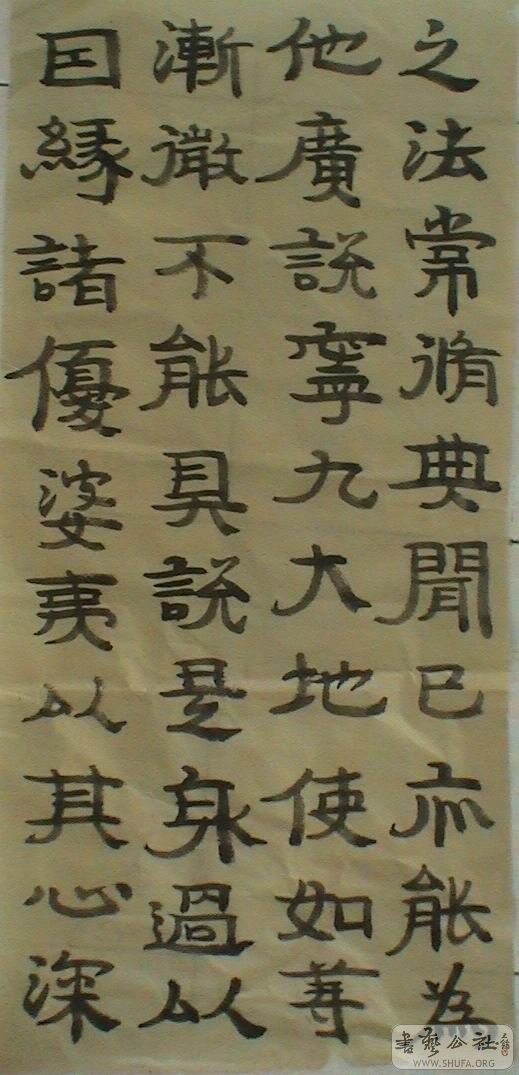 之法常脩典聞已亦能為
他廣說寧九大地使如等
漸微不能具說是身過以
因縁諸優婆夷以其心深
書藝公社
WWW.SHUFA.ORG